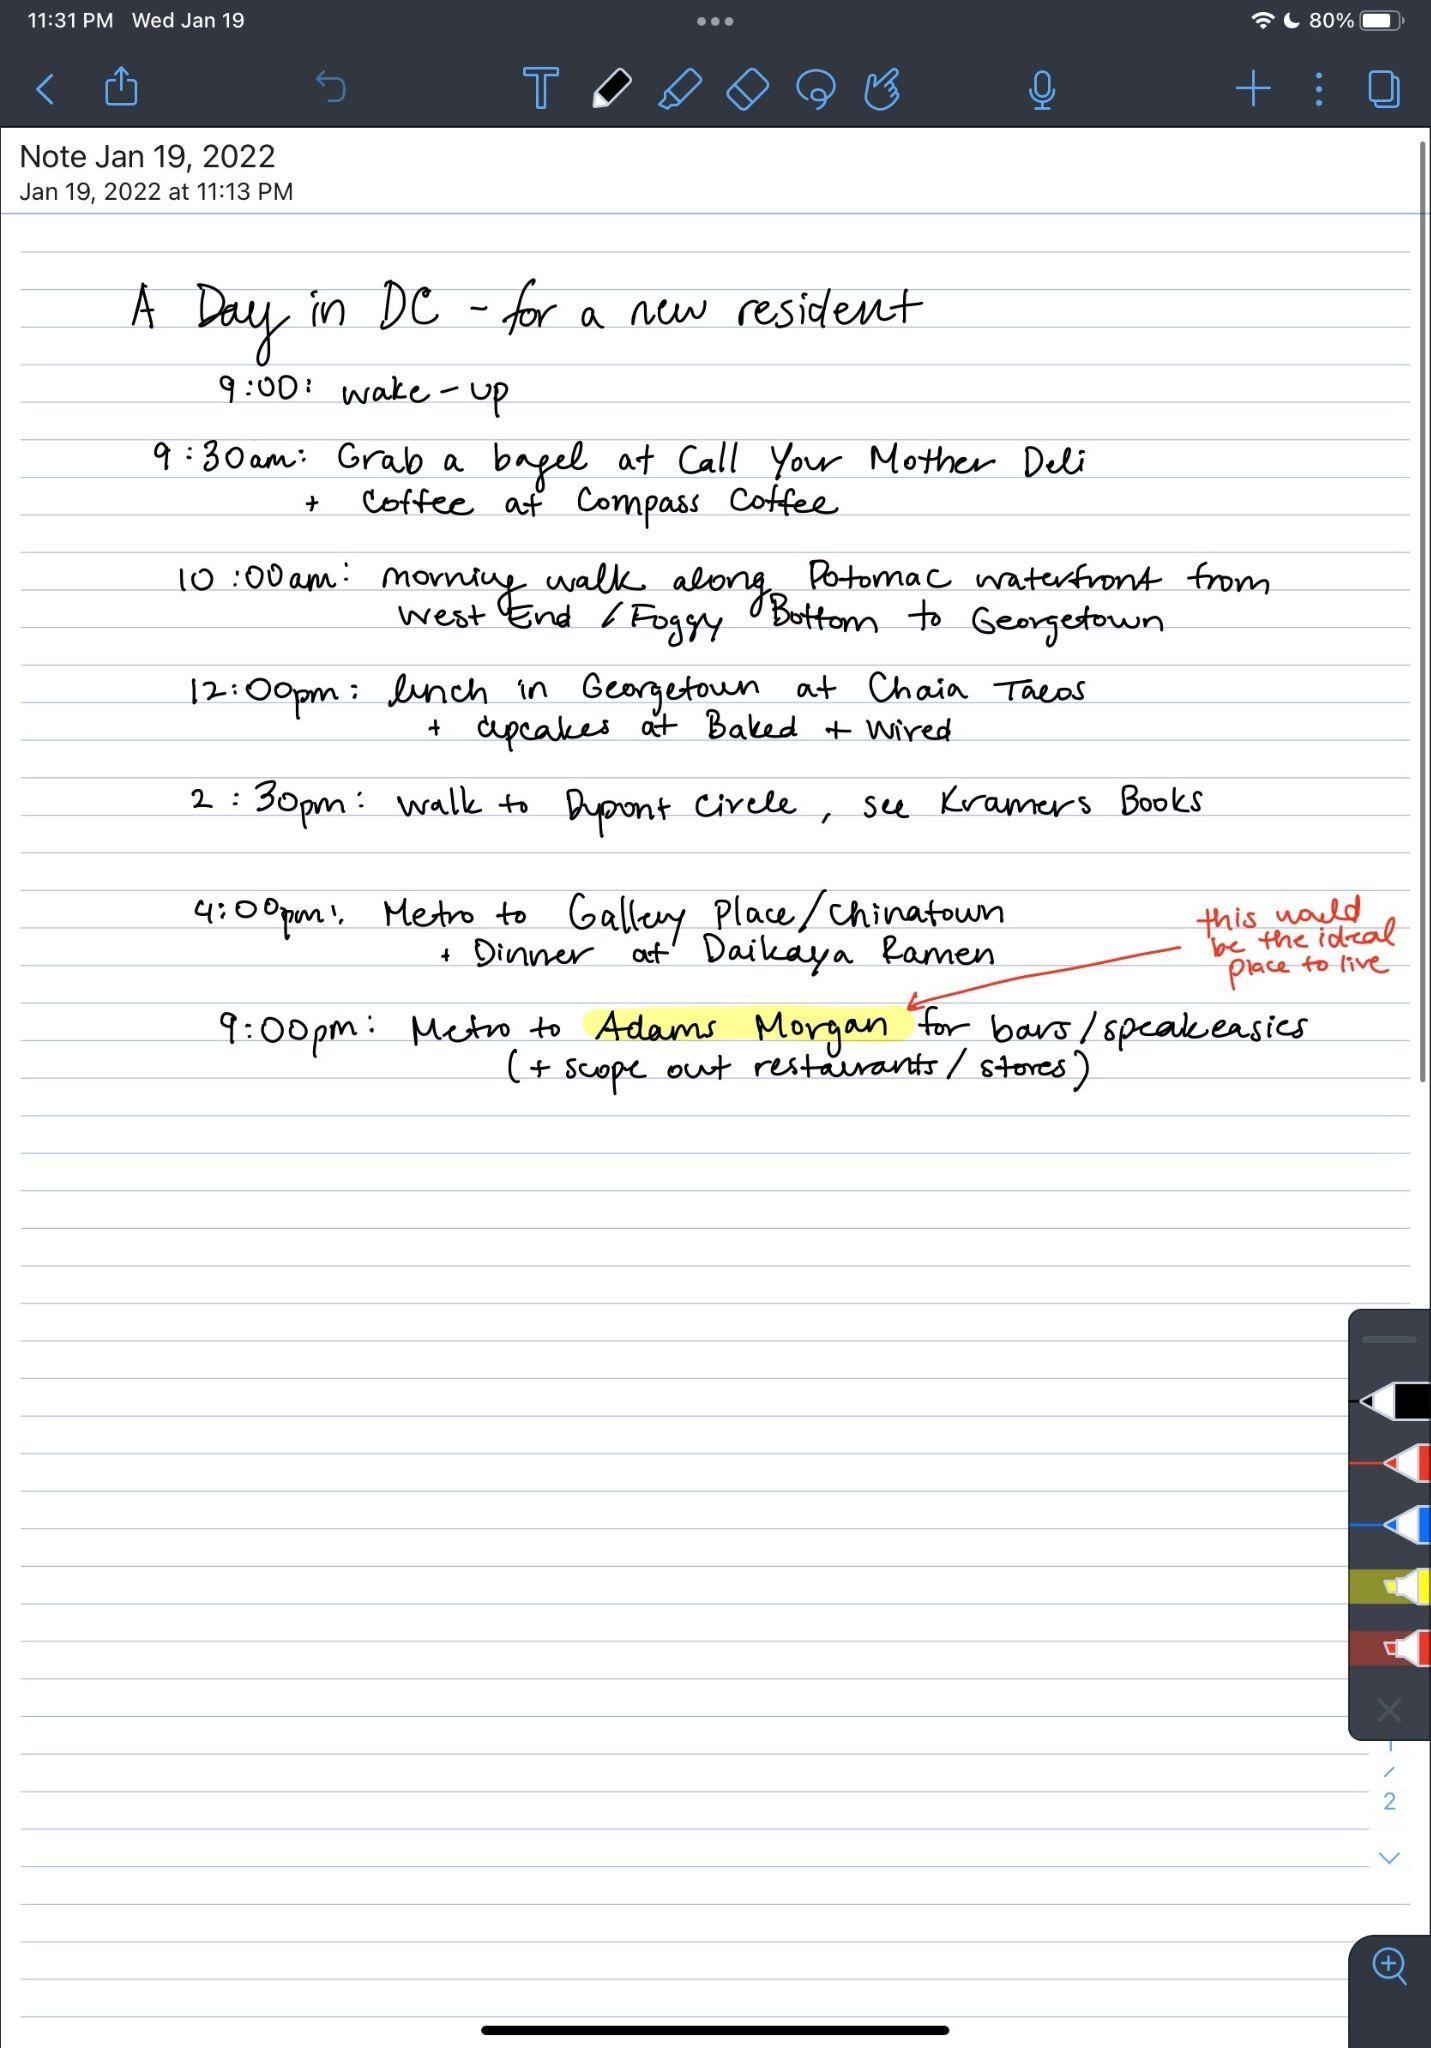 11:31 PM Wed Jan 19
80%
Note Jan 19, 2022
Jan 19, 2022 at 11:13 PM
A Day in DC - for a new resident
9:00: wake-up
9:30am: Grab a bagel at Call Your Mother Deli
+ Coffee at Compass Coffee
10:00am: morning walk along Potomac waterfront from
West End / Foggy Bottom to Georgetown
12:00pm: lunch in Georgetown at Chaia Tacos
+ cupcakes at Baked + Wired
2:30pm: walk to Dupont Circle, see Kramers Books
4:00pm: Metro to Gallery Place/Chinatown
+ Dinner at Daikaya Ramen
this would
be the ideal
place to live
9:00pm: Metro to Adams Morgan for bars/speakeasies
(+ scope out restaurants/ stores)
1
/
2